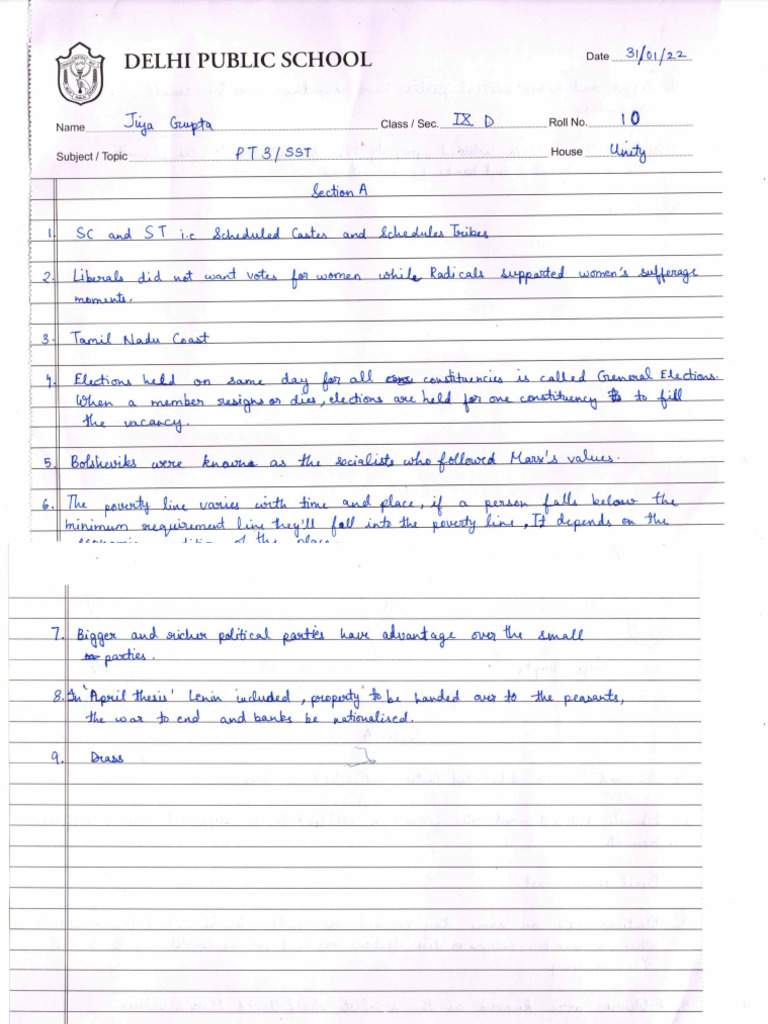 DELHI PUBLIC SCHOOL
Date 31/01/22
Name Jiya Gupta Class / Sec. IX D Roll No. 10
Subject / Topic PT3/SST House Unity
Section A
1. SC and ST i.e Scheduled Castes and Schedules Tribes
2. Liberals did not want votes for women while Radicals supported women's sufferage
moments.
3. Tamil Nadu Coast
4. Elections held on same day for all constituencies is called General Elections.
When a member resigns or dies, elections are held for one constituency to fill
the vacancy.
5. Bolsheviks were known as the socialists who followed Marx's values.
6. The poverty line varies with time and place, if a person falls below the
minimum requirement line they'll fall into the poverty line, It depends on the
of the place.
7. Bigger and richer political parties have advantage over the small
parties.
8. In 'April thesis' Lenin included, property to be handed over to the peasants,
the war to end and banks be nationalised.
9. Drass